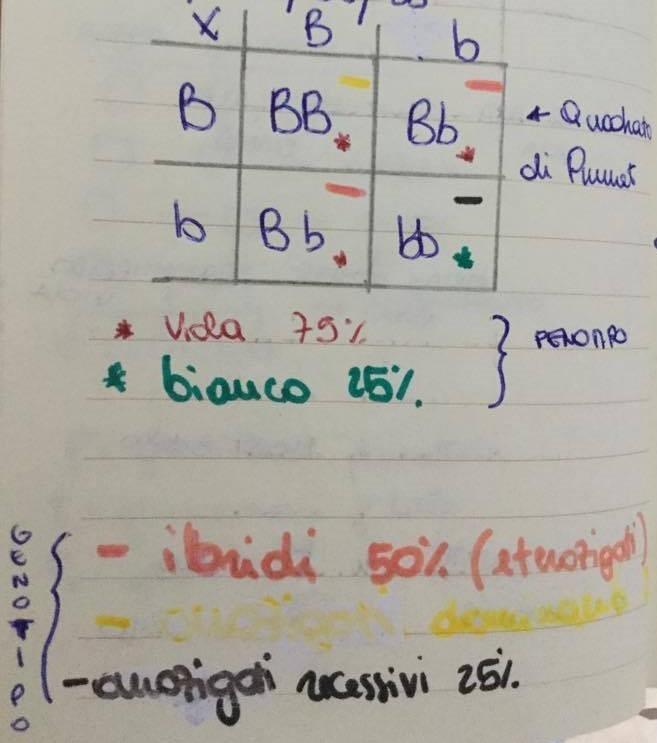 X B b
B BB * Bb * ← Quadrato
di Punnet
b Bb * bb *
* Viola 75%
* bianco 25%. } FENOTIPO
GENOTIPO
- ibridi 50% (eterozigoti)
- omozigoti dominanti
- omozigoti recessivi 25%.